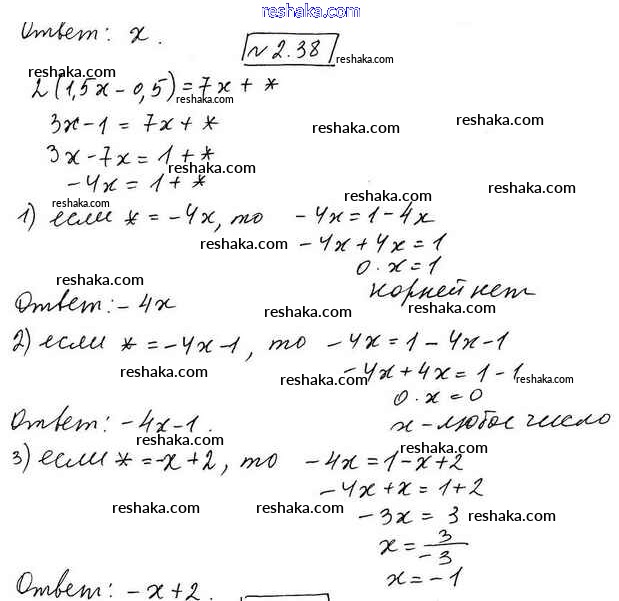 reshaka.com
Ответ: x.
№2.38
reshaka.com
reshaka.com
2(1,5x-0,5)=7x+*
reshaka.com
3x-1=7x+*
reshaka.com
reshaka.com
3x-7x=1+*
reshaka.com
-4x=1+*
reshaka.com
reshaka.com
reshaka.com
1) если *=-4x, то -4x=1-4x
reshaka.com
-4x+4x=1
reshaka.com
0·x=1
reshaka.com
корней нет
Ответ:-4x
reshaka.com
reshaka.com
2) если *=-4x-1, то -4x=1-4x-1
reshaka.com
-4x+4x=1-1
reshaka.com
reshaka.com
0·x=0
Ответ: -4x-1.
x-любое число
reshaka.com
reshaka.com
3) если *=-x+2, то -4x=1-x+2
-4x+x=1+2
reshaka.com
reshaka.com
-3x=3
reshaka.com
x=3/-3
x=-1
Ответ: -x+2.